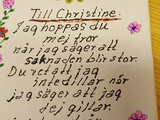 Till Christine.
Jag hoppas du
mej tror
när jag säger att
saknaden blir stor.
Du vet att jag
inte dillar när
jag säger att jag
dej gillar.